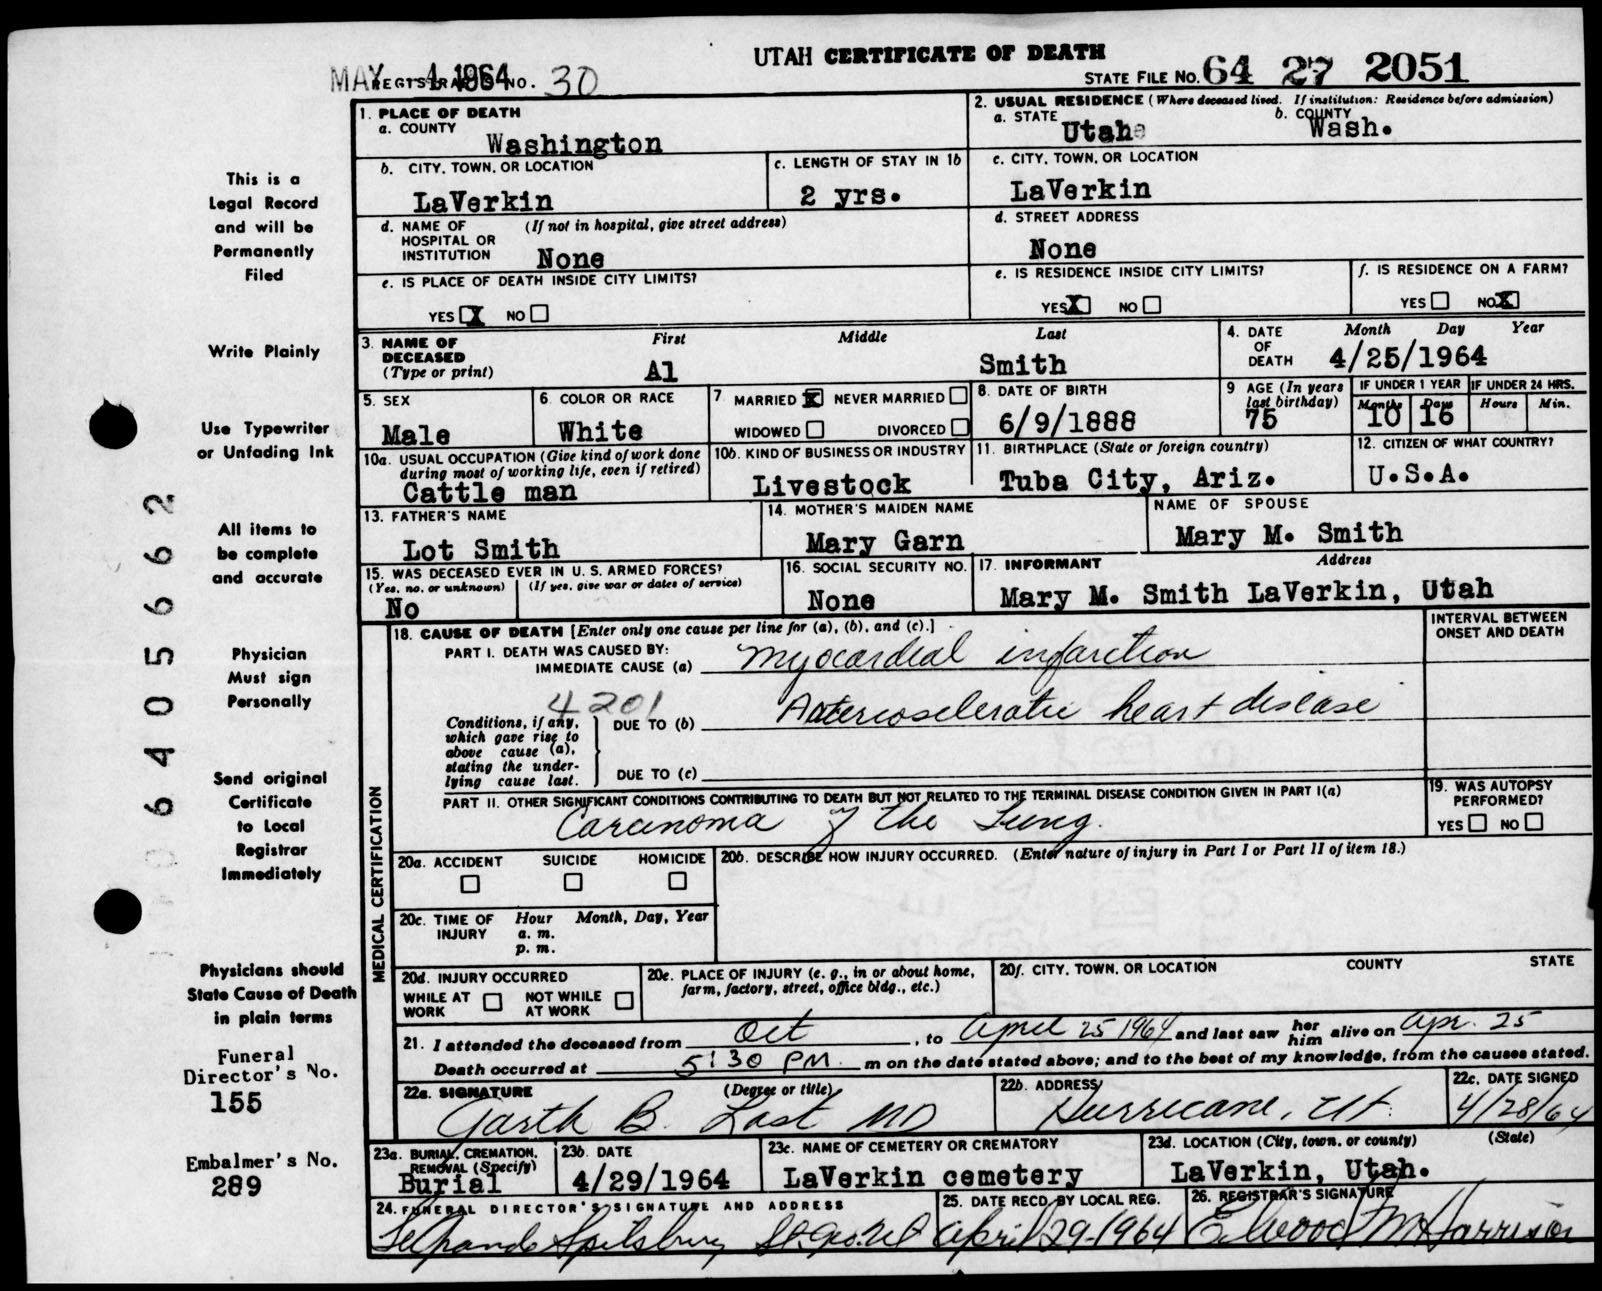 UTAH CERTIFICATE OF DEATH
MAY - 1 1964
REGISTRAR'S NO. 30
STATE FILE NO. 64 27 2051
1. PLACE OF DEATH
a. COUNTY
Washington
2. USUAL RESIDENCE (Where deceased lived. If institution: Residence before admission)
a. STATE
Utah
b. COUNTY
Wash.
b. CITY, TOWN, OR LOCATION
LaVerkin
c. LENGTH OF STAY IN 1b
2 yrs.
c. CITY, TOWN, OR LOCATION
LaVerkin
d. NAME OF HOSPITAL OR INSTITUTION
(If not in hospital, give street address)
None
d. STREET ADDRESS
None
e. IS PLACE OF DEATH INSIDE CITY LIMITS?
YES X NO
e. IS RESIDENCE INSIDE CITY LIMITS?
YES X NO
f. IS RESIDENCE ON A FARM?
YES NO X
3. NAME OF DECEASED
(Type or print)
First Middle Last
Al Smith
4. DATE OF DEATH
Month Day Year
4/25/1964
5. SEX
Male
6 COLOR OR RACE
White
7 MARRIED X NEVER MARRIED
WIDOWED DIVORCED
8. DATE OF BIRTH
6/9/1888
9 AGE (In years last birthday)
75
IF UNDER 1 YEAR
Months Days
10 16
IF UNDER 24 HRS.
Hours Min.
10a. USUAL OCCUPATION (Give kind of work done during most of working life, even if retired)
Cattle man
10b. KIND OF BUSINESS OR INDUSTRY
Livestock
11. BIRTHPLACE (State or foreign country)
Tuba City, Ariz.
12. CITIZEN OF WHAT COUNTRY?
U.S.A.
13. FATHER'S NAME
Lot Smith
14. MOTHER'S MAIDEN NAME
Mary Garn
NAME OF SPOUSE
Mary M. Smith
15. WAS DECEASED EVER IN U. S. ARMED FORCES?
(Yes, no, or unknown) (If yes, give war or dates of service)
No
16. SOCIAL SECURITY NO.
None
17. INFORMANT Address
Mary M. Smith LaVerkin, Utah
MEDICAL CERTIFICATION
18. CAUSE OF DEATH [Enter only one cause per line for (a), (b), and (c).]
INTERVAL BETWEEN ONSET AND DEATH
PART I. DEATH WAS CAUSED BY:
IMMEDIATE CAUSE (a) Myocardial infarction
4201
Conditions, if any, which gave rise to above cause (a), stating the underlying cause last.
DUE TO (b) Arteriosclerotic heart disease
DUE TO (c)
PART II. OTHER SIGNIFICANT CONDITIONS CONTRIBUTING TO DEATH BUT NOT RELATED TO THE TERMINAL DISEASE CONDITION GIVEN IN PART I(a)
Carcinoma of the Lung.
19. WAS AUTOPSY PERFORMED?
YES NO
20a. ACCIDENT SUICIDE HOMICIDE
20b. DESCRIBE HOW INJURY OCCURRED. (Enter nature of injury in Part I or Part II of item 18.)
20c. TIME OF INJURY
Hour Month, Day, Year
a. m.
p. m.
20d. INJURY OCCURRED
WHILE AT WORK NOT WHILE AT WORK
20e. PLACE OF INJURY (e. g., in or about home, farm, factory, street, office bldg., etc.)
20f. CITY, TOWN, OR LOCATION COUNTY STATE
21. I attended the deceased from Oct , to April 25 1964 and last saw her him alive on Apr. 25
Death occurred at 5:30 PM. m on the date stated above; and to the best of my knowledge, from the causes stated.
22a. SIGNATURE (Degree or title)
Garth B. Last MD
22b. ADDRESS
Hurricane, Ut.
22c. DATE SIGNED
4/28/64
23a. BURIAL, CREMATION, REMOVAL (Specify)
Burial
23b. DATE
4/29/1964
23c. NAME OF CEMETERY OR CREMATORY
LaVerkin cemetery
23d. LOCATION (City, town, or county) (State)
LaVerkin, Utah.
24. FUNERAL DIRECTOR'S SIGNATURE AND ADDRESS
Spilsbury St. Geo. Ut
25. DATE RECD. BY LOCAL REG.
April 29-1964
26. REGISTRAR'S SIGNATURE
Elwood M Harrison
This is a
Legal Record
and will be
Permanently
Filed
Write Plainly
Use Typewriter
or Unfading Ink
All items to
be complete
and accurate
Physician
Must sign
Personally
Send original
Certificate
to Local
Registrar
Immediately
Physicians should
State Cause of Death
in plain terms
Funeral
Director's No.
155
Embalmer's No.
289
6405662